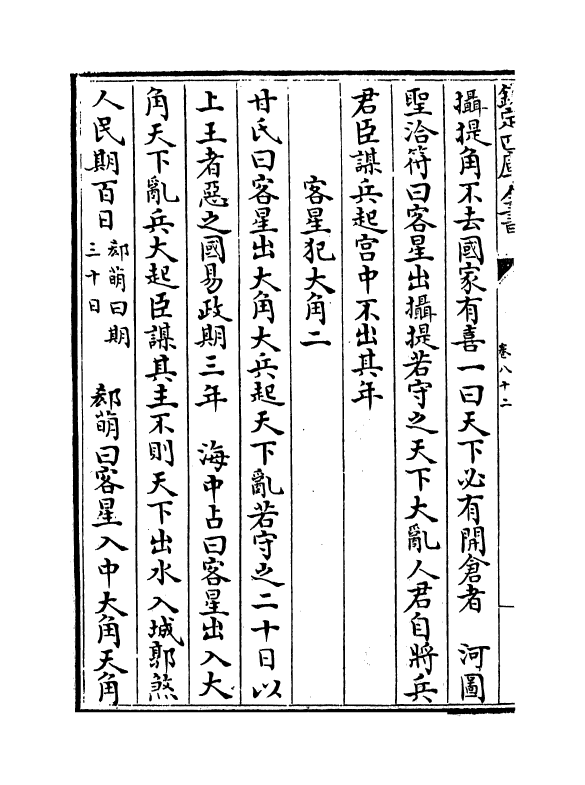 欽定四庫全書
卷八十二
攝提角不去國家有喜一曰天下必有開倉者　河圖
聖洽符曰客星出攝提若守之天下大亂人君自將兵
君臣謀兵起宮中不出其年
客星犯大角二
甘氏曰客星出大角大兵起天下亂若守之二十日以
上王者惡之國易政期三年　海中占曰客星出入大
角天下亂兵大起臣謀其主不則天下出水入城郭煞
人民期百日郄萌曰期三十日　郄萌曰客星入中大角天角